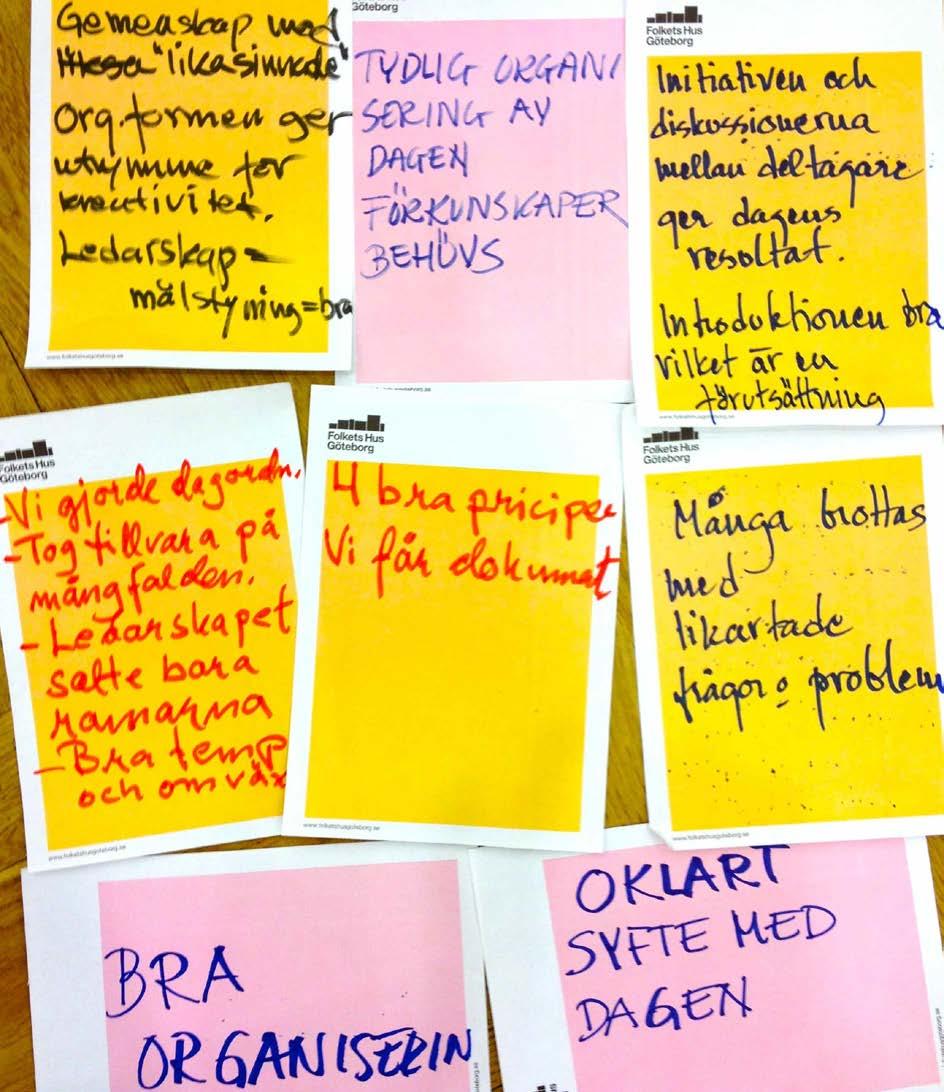 Gemenskap med
"likasinnade"
Org.formen ger
utrymme för
kreativitet.
Ledarskap =
målstyrning=bra
www.folketshusgöteborg.se
Göteborg
TYDLIG ORGANI
SERING AV
DAGEN
FÖRKUNSKAPER
BEHÖVS
Folkets Hus
Göteborg
Initiativen och
diskussionerna
mellan deltagare
ger dagens
resultat.
Introduktionen bra
vilket är en
förutsättning
www.folketshusgöteborg.se
Folkets Hus
Göteborg
-Vi gjorde dagordn.
-Tog tillvara på
mångfalden.
-Ledarskapet
satte bara
ramarna
-Bra temp
och om väx
www.folketshusgöteborg.se
Folkets Hus
Göteborg
4 bra priciper
Vi får dokumat
www.folketshusgöteborg.se
Folkets Hus
Göteborg
Många brottas
med
likartade
frågor o problem
www.folketshusgöteborg.se
BRA
ORGANISERIN
OKLART
SYFTE MED
DAGEN